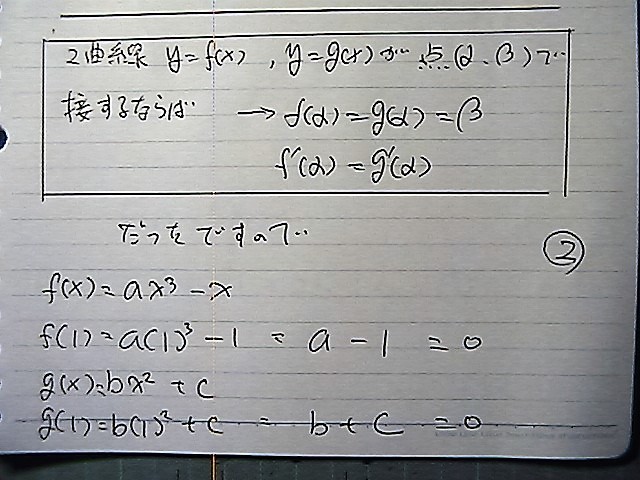 2曲線 y=f(x) , y=g(x) が 点(α、β)で
接するならば → f(α)=g(α)=β
f'(α)=g'(α)
だったですので
②
f(x)=ax³-x
f(1)=a(1)³-1 = a-1 =0
g(x)=bx²+c
g(1)=b(1)²+c = b+c =0